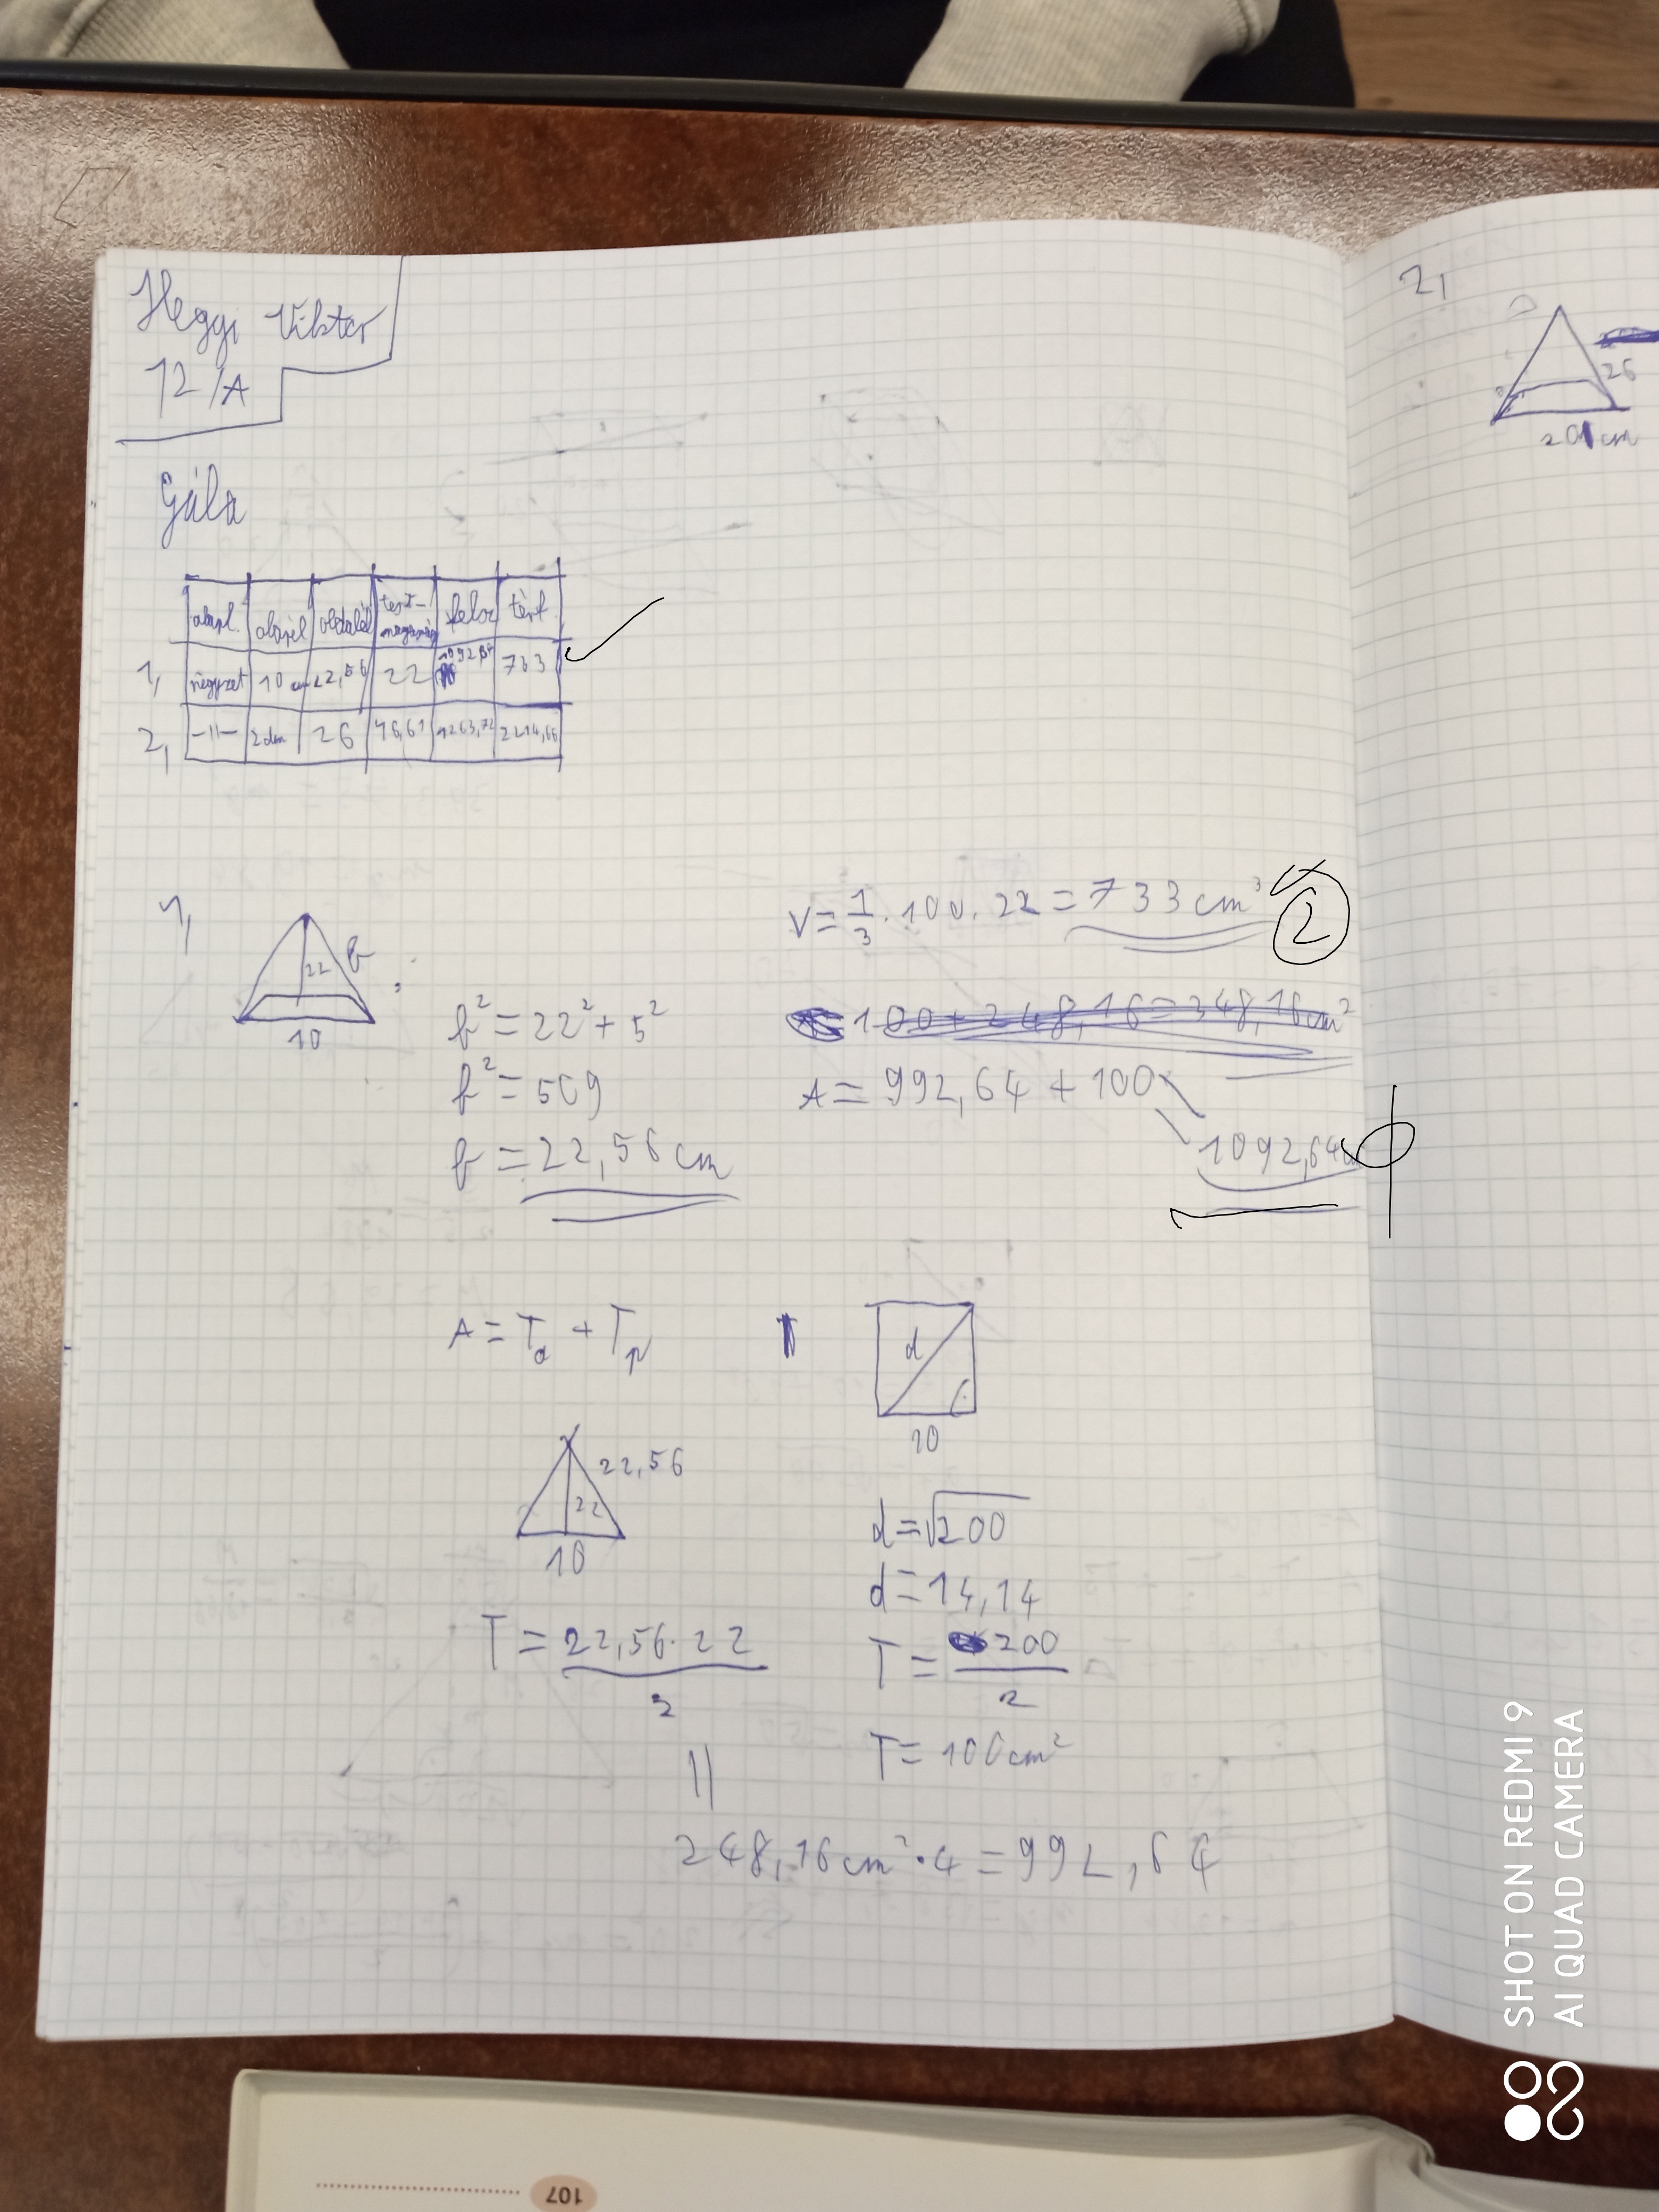 Hegyi Viktor
12/A
Gúla
alapl. alapél oldalél test-magasság felsz térf.
1, négyzet 10 cm 22,56 22 1092,64 733
2, -11- 2dm 26 16,61 1263,72 2214,66
1,
22 b
10
b² = 22² + 5²
b² = 509
b = 22,56 cm
V = 1/3 · 100 · 22 = 733 cm³
2
100 + 248,16 = 348,16 cm²
A = 992,64 + 100
1092,64
A = Ta + Tp
22,56
22
10
T = 22,56 · 22 / 2
=
248,16 cm² · 4 = 992,64
d
10
d = √200
d = 14,14
T = 200 / 2
T = 100 cm²
2,
26
20 cm
SHOT ON REDMI 9
AI QUAD CAMERA
107